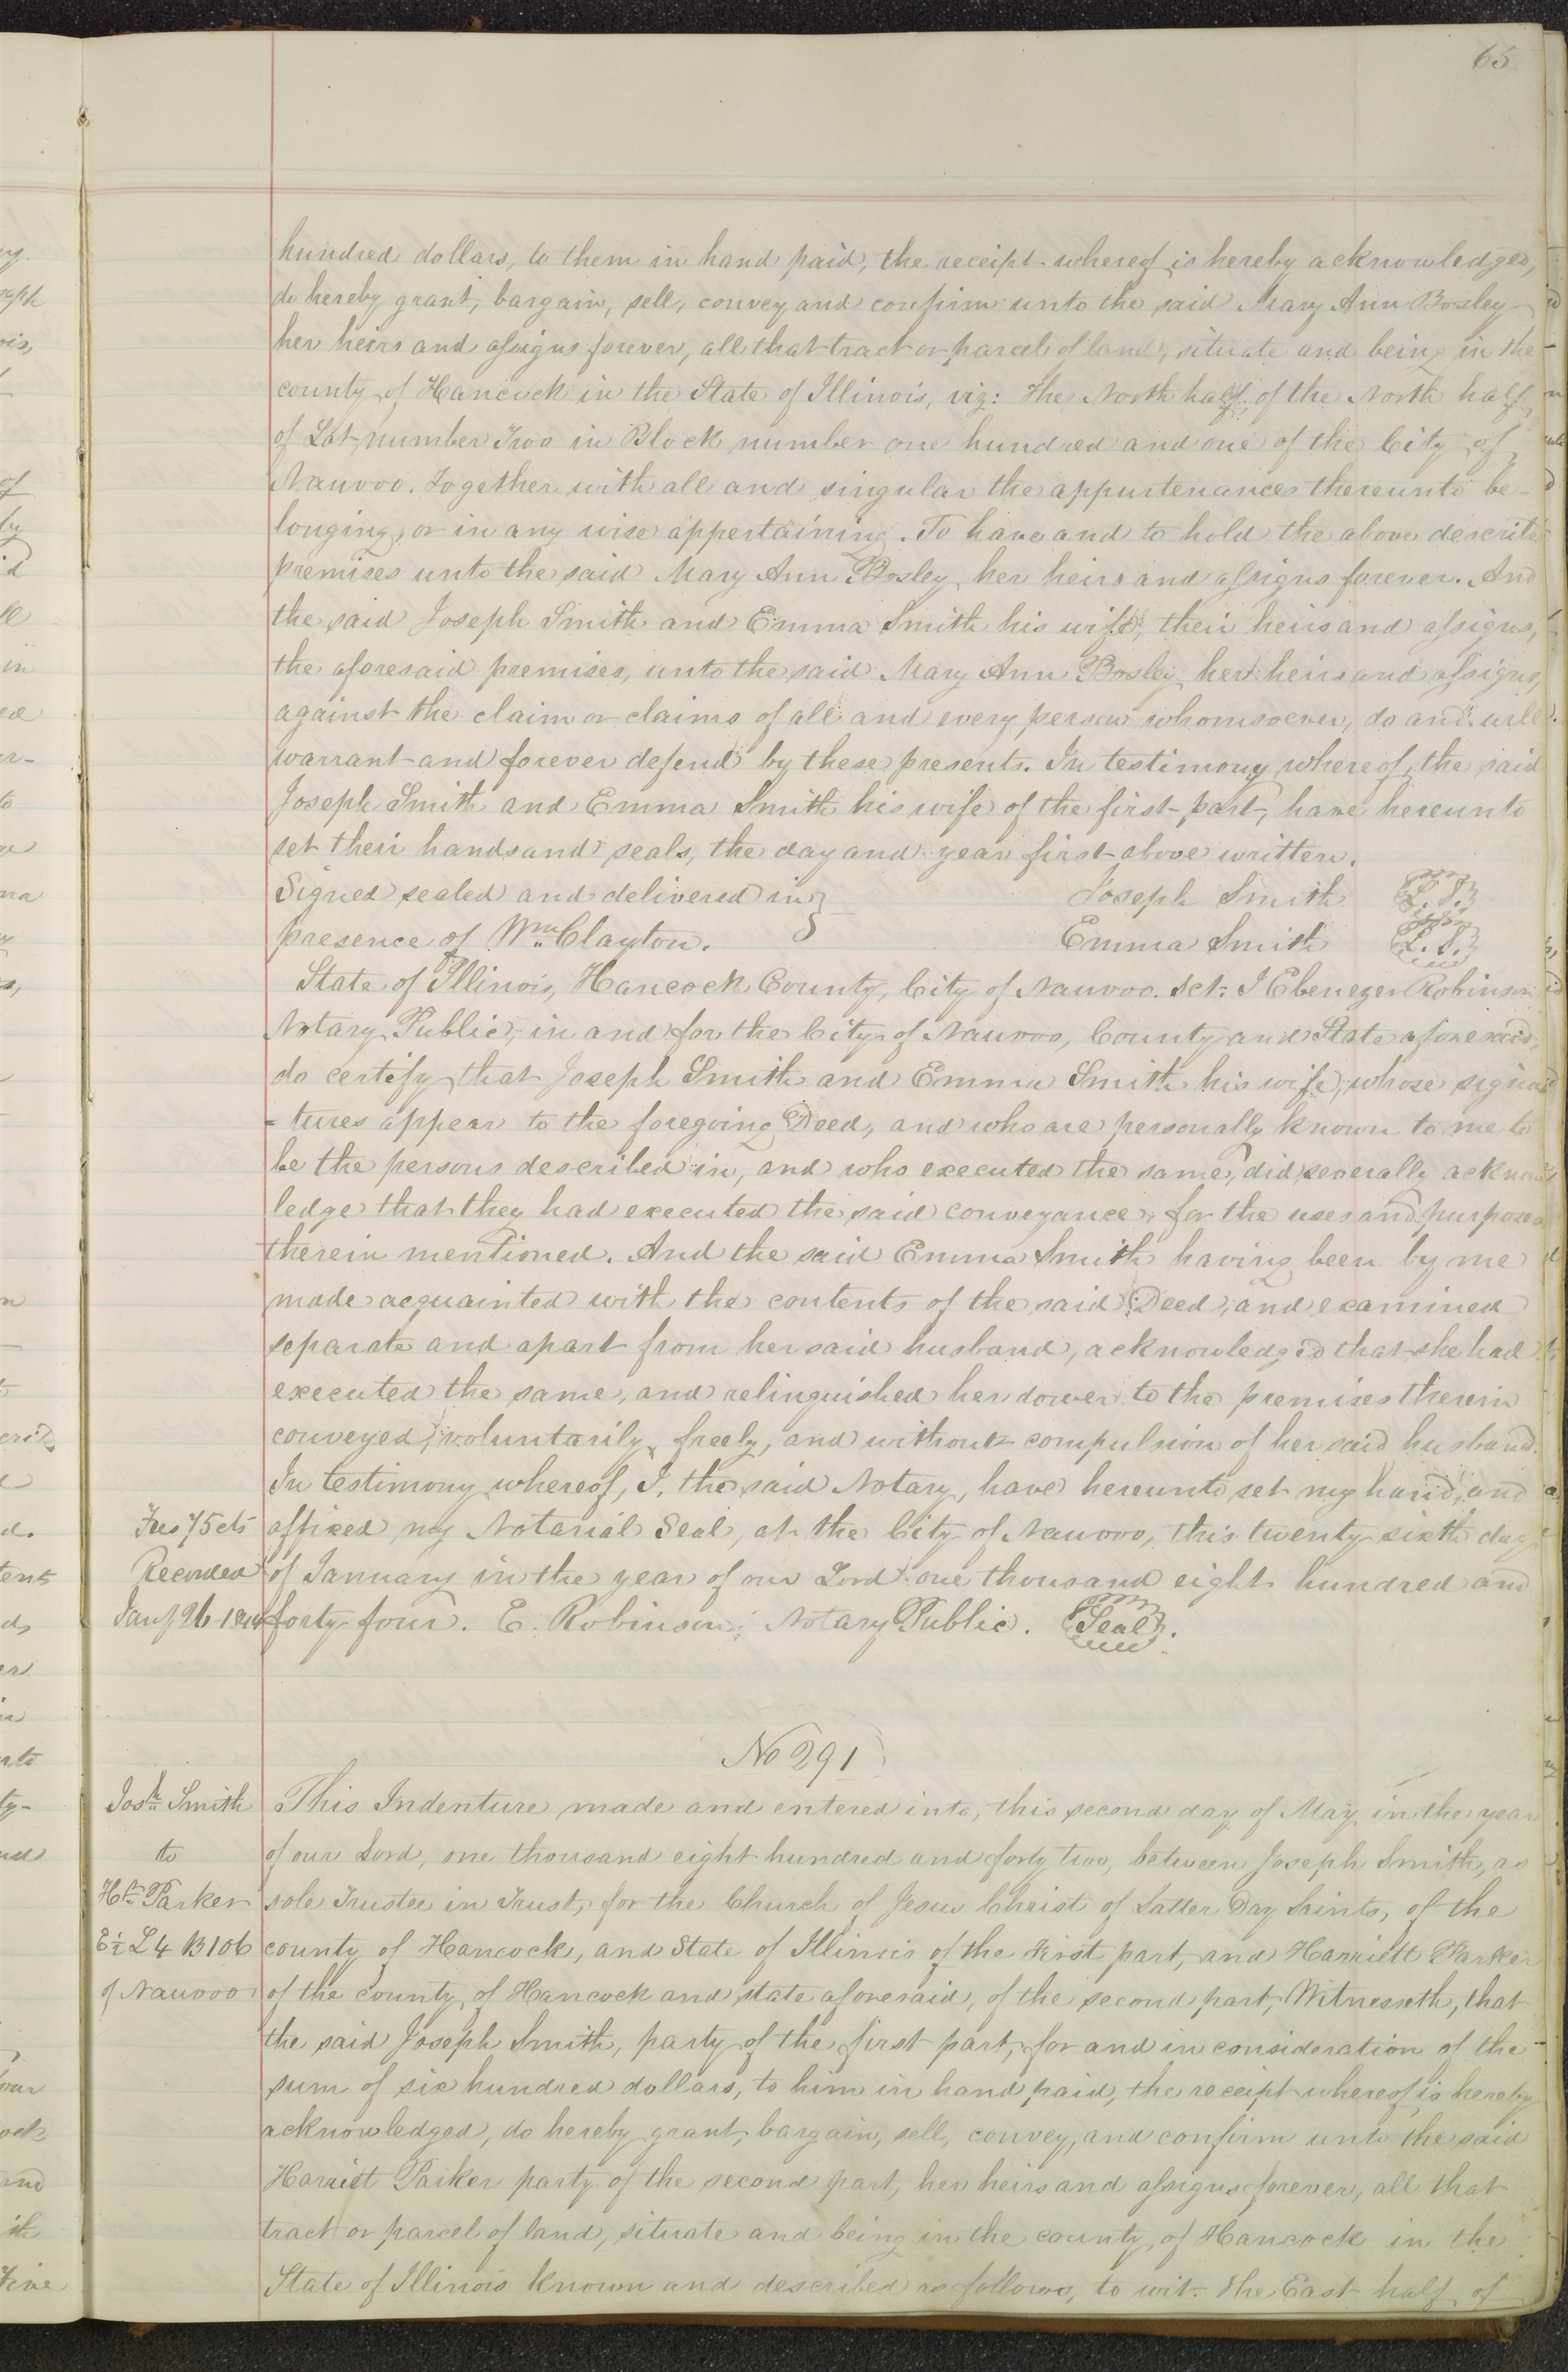 65
hundred dollars, to them in hand paid, the receipt whereof is hereby acknowledged,
do hereby grant, bargain, sell, convey and confirm unto the said Mary Ann Bosley
her heirs and assigns forever, all that tract or parcel of land, situate and being in the
county of Hancock in the State of Illinois, viz: The North half of the North half
of Lot number Two in Block number one hundred and one of the City of
Nauvoo. Together with all and singular the appurtenances thereunto be-
longing, or in any wise appertaining. To have and to hold the above described
premises unto the said Mary Ann Bosley her heirs and assigns forever. And
the said Joseph Smith and Emma Smith his wife, their heirs and assigns,
the aforesaid premises, unto the said Mary Ann Bosley her heirs and assigns,
against the claim or claims of all and every person whomsoever, do and will
warrant and forever defend by these presents. In testimony whereof, the said
Joseph Smith and Emma Smith his wife of the first part, have hereunto
set their hands and seals, the day and year first above written.
Signed sealed and delivered in } Joseph Smith L.S.
presence of Wm Clayton. Emma Smith L.S.
State of Illinois, Hancock County, City of Nauvoo. Sct. I Ebenezer Robinson
Notary Public, in and for the City of Nauvoo, County and State aforesaid,
do certify that Joseph Smith and Emma Smith his wife, whose signa
-tures appear to the foregoing Deed, and who are personally known to me to
be the persons described in, and who executed the same, did severally acknow
ledge that they had executed the said conveyance, for the uses and purposes
therein mentioned. And the said Emma Smith having been by me
made acquainted with the contents of the said Deed, and examined
separate and apart from her said husband, acknowledged that she had
executed the same, and relinquished her dower to the premises therein
conveyed, voluntarily, freely, and without compulsion of her said husband.
In testimony whereof, I, the said Notary, have hereunto set my hand, and
Fees 75 cts affixed my Notarial Seal, at the City of Nauvoo, this twenty sixth day
Recorded of January in the year of our Lord one thousand eight hundred and
Jany 26 1844 forty four. E. Robinson, Notary Public. Seal.
No 291
Josh Smith This Indenture made and entered into, this second day of May in the year
to of our Lord, one thousand eight hundred and forty two, between Joseph Smith, as
Ht Parker sole Trustee in Trust, for the Church of Jesus Christ of Latter Day Saints, of the
E ½ L 4 B 106 county of Hancock, and State of Illinois of the First part, and Harriett Parker
of Nauvoo of the county of Hancock and state aforesaid, of the second part, Witnesseth, that
the said Joseph Smith, party of the first part, for and in consideration of the
sum of six hundred dollars, to him in hand paid, the receipt whereof is hereby
acknowledged, do hereby grant, bargain, sell, convey, and confirm unto the said
Harriet Parker party of the second part, her heirs and assigns forever, all that
tract or parcel of land, situate and being in the county of Hancock in the
State of Illinois known and described as follows, to wit. The East half of